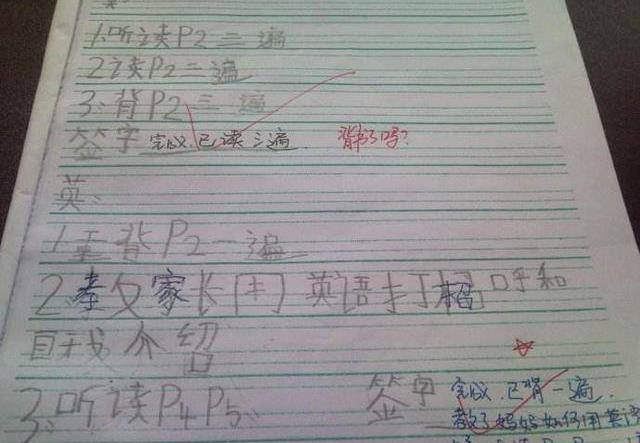 英:
1.听读P2三遍
2读P2二遍
3.背P2三遍
签字 完成.已读三遍. 背了吗?
英:
1重背P2一遍
2孝父家长用英语打招呼和
自我介绍
3.听读P4P5. 签字 完成.已背一遍.
教了妈妈如何用英语